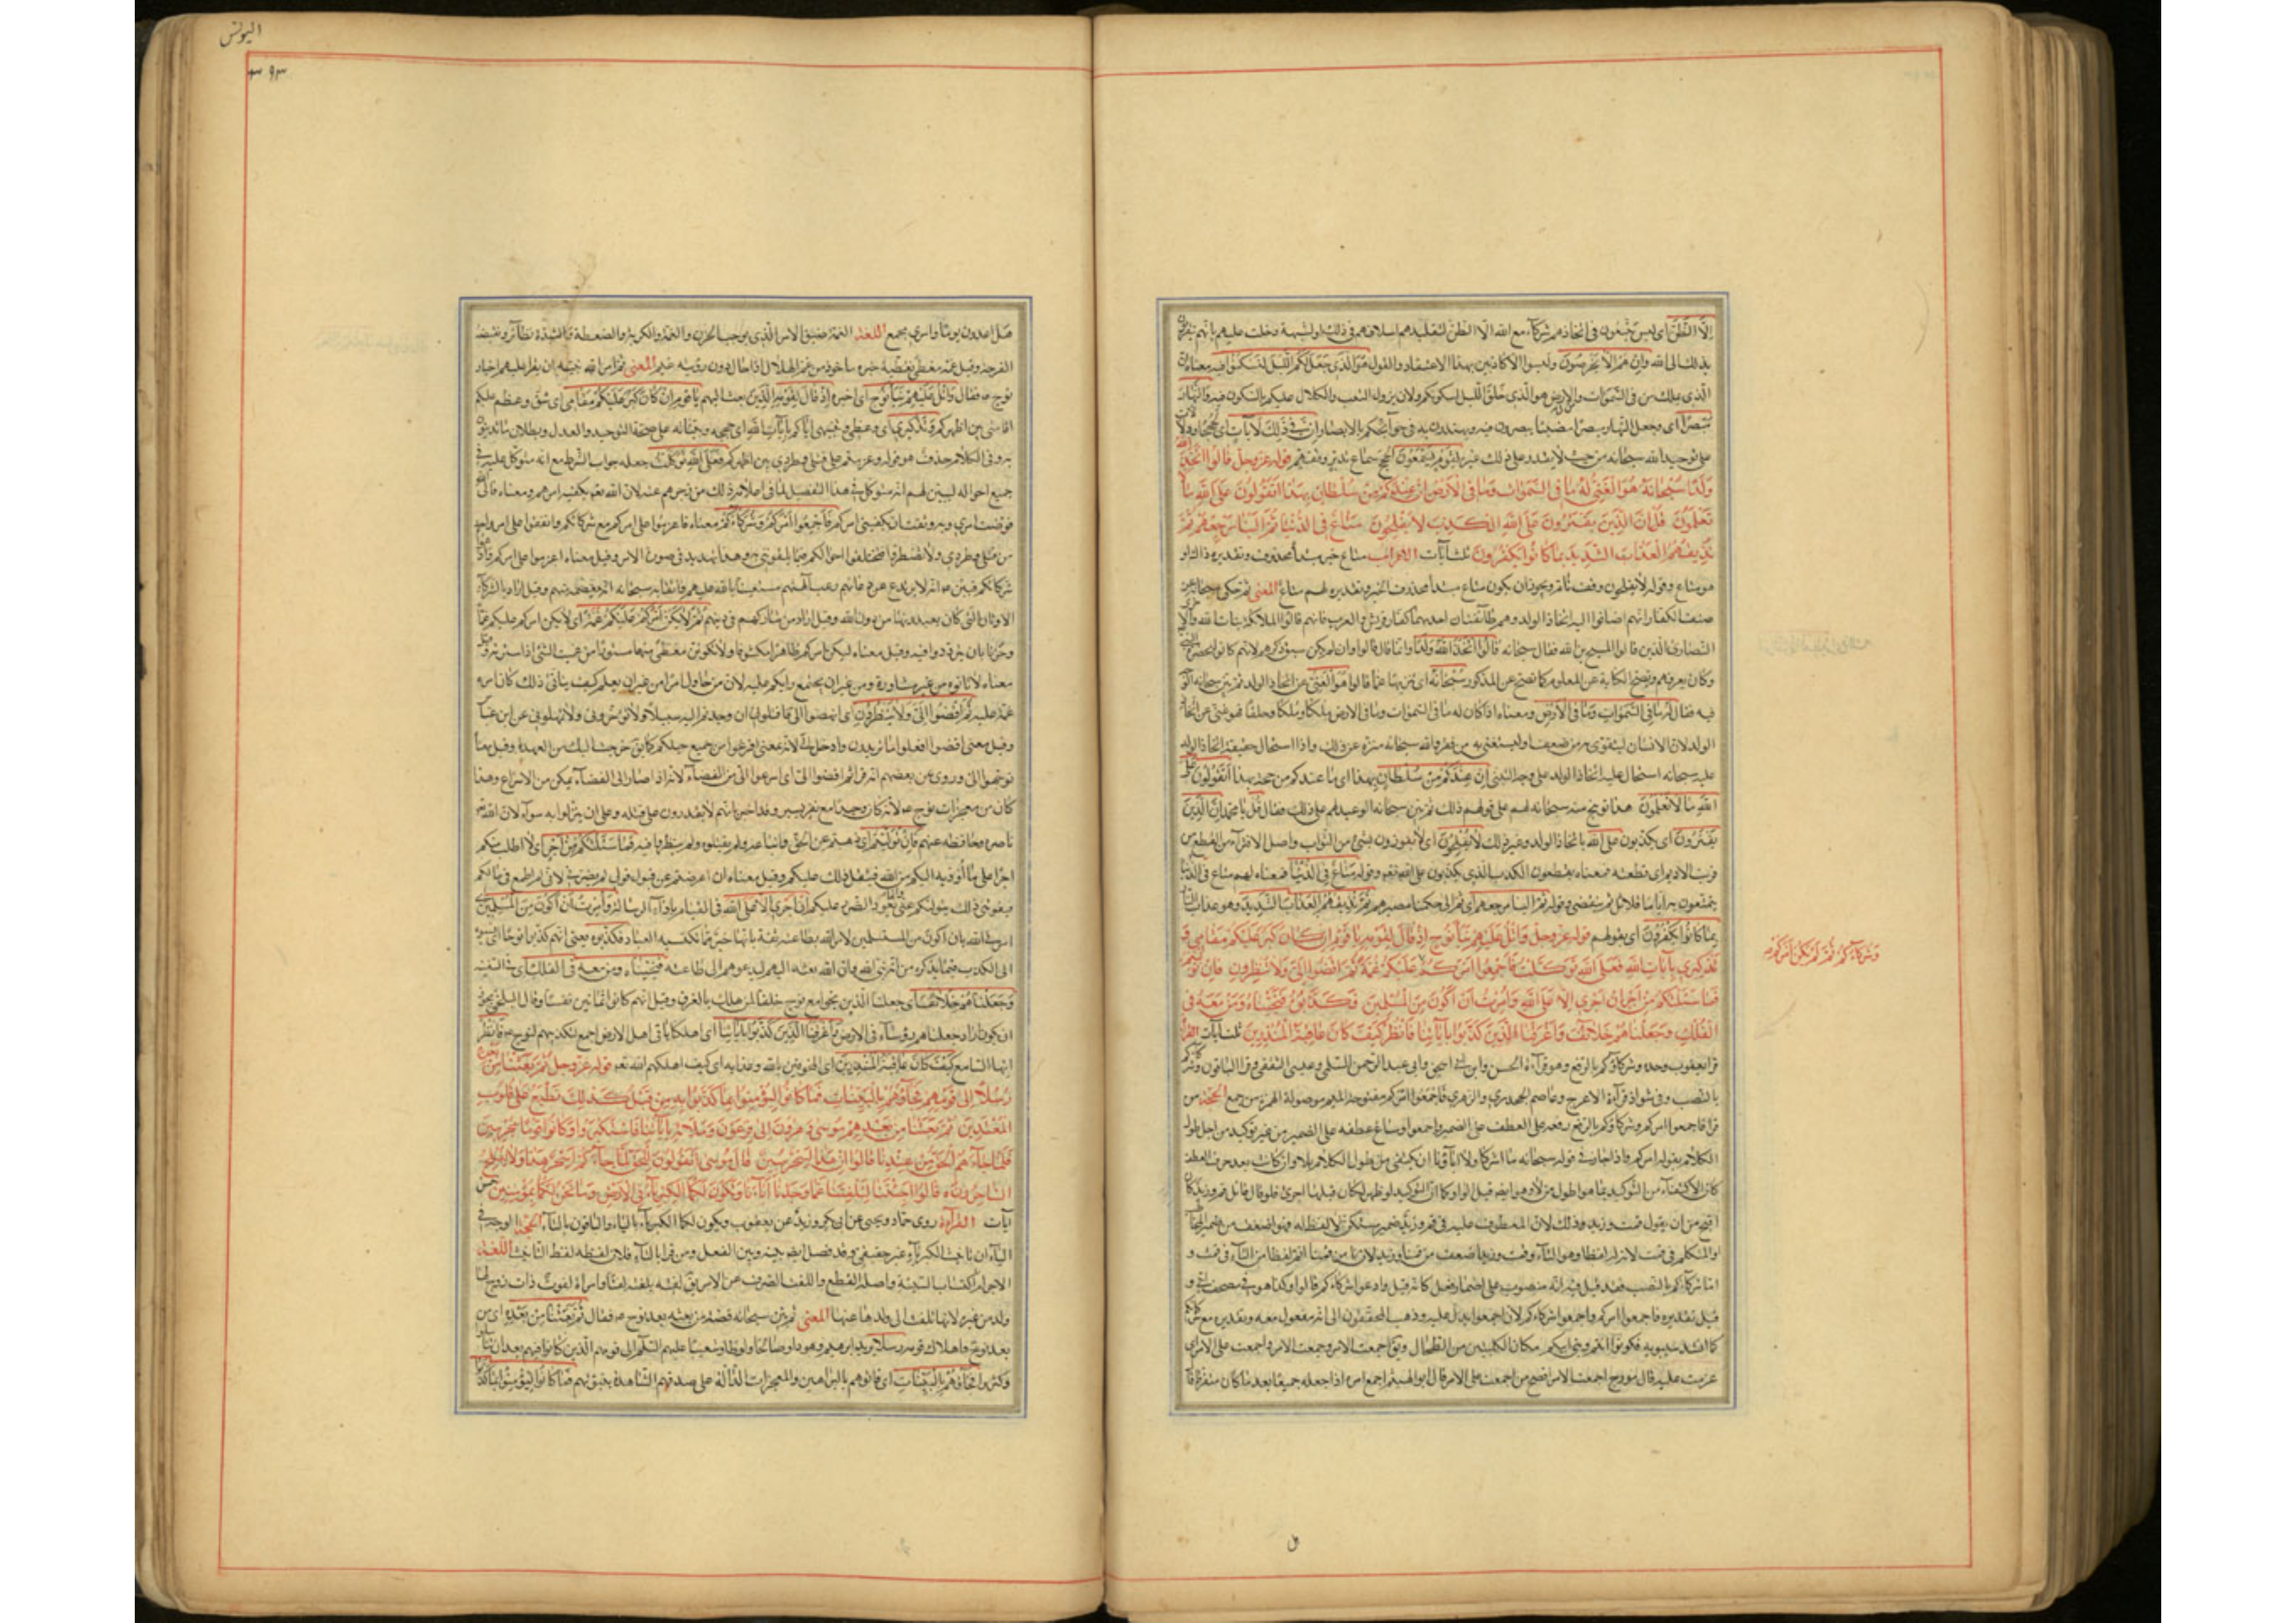 إِلَّا الظَّنَّ اى ليس يتبعون فى اتخاذهم شركاء مع الله الا الظن لتقليدهم اسلافهم فى ذلك او لشبهة دخلت عليهم بانهم يتقربون
بذلك الى الله وَإِنْ هُمْ إِلَّا يَخْرُصُونَ وليسوا الا كاذبين بهذا الاعتقاد والقول هُوَ الَّذِي جَعَلَ لَكُمُ اللَّيْلَ لِتَسْكُنُوا فِيهِ معناه ان
الذى يملك من فى السموات والارض هو الذى خلق الليل لسكونكم ولان يزول التعب والكلال عليكم بالسكون فيه وَالنَّهَارَ
مُبْصِرًا اى وجعل النهار مبصرا مضيئا تبصرون فيه وتهتدون به فى حوائجكم بالابصار إِنَّ فِي ذَلِكَ لَآيَاتٍ اى لحججا ودلالات
على توحيد الله سبحانه من حيث لا يقدر على ذلك غيره لِقَوْمٍ يَسْمَعُونَ الحجج سماع تدبر وتفهم قوله عز وجل قَالُوا اتَّخَذَ اللَّهُ
وَلَدًا سُبْحَانَهُ هُوَ الْغَنِيُّ لَهُ مَا فِي السَّمَوَاتِ وَمَا فِي الْأَرْضِ إِنْ عِنْدَكُمْ مِنْ سُلْطَانٍ بِهَذَا أَتَقُولُونَ عَلَى اللَّهِ مَا لَا
تَعْلَمُونَ قُلْ إِنَّ الَّذِينَ يَفْتَرُونَ عَلَى اللَّهِ الْكَذِبَ لَا يُفْلِحُونَ مَتَاعٌ فِي الدُّنْيَا ثُمَّ إِلَيْنَا مَرْجِعُهُمْ ثُمَّ
نُذِيقُهُمُ الْعَذَابَ الشَّدِيدَ بِمَا كَانُوا يَكْفُرُونَ ثلث آيات الاعراب متاع خبر مبتدأ محذوف وتقديره ذاك او
هو متاع وقوله لا يفلحون وقف تام ويجوز ان يكون متاع مبتدأ محذوف الخبر وتقديره لهم متاع المعنى ثم حكى سبحانه عن
صنف الكفار انهم اضافوا اليه اتخاذ الولد وهم طائفتان احدهما كفار قريش والعرب فانهم قالوا الملائكة بنات الله والاخرى
النصارى الذين قالوا المسيح بن الله فقال سبحانه قَالُوا اتَّخَذَ اللَّهُ وَلَدًا وانما قال قالوا وان لم يكن سبق ذكرهم لانهم كانوا بحضرة النبى
وكان يعرفهم وتصح الكناية عن المعلوم كما تصح عن المذكور سُبْحَانَهُ اى تنزيها عما قالوا هُوَ الْغَنِيُّ عن اتخاذ الولد ثم بين سبحانه الوجه
فيه فقال لَهُ مَا فِي السَّمَوَاتِ وَمَا فِي الْأَرْضِ ومعناه اذا كان له ما فى السموات وما فى الارض ملكا وملكا وخلقا فهو غنى عن اتخاذ
الولد لان الانسان ليتقوى به من ضعف او ليستغنى به من فقر والله سبحانه منزه عن ذلك واذا استحال حقيقة اتخاذ الولد
عليه سبحانه استحال عليه اتخاذ الولد على وجه التبنى إِنْ عِنْدَكُمْ مِنْ سُلْطَانٍ بِهَذَا اى ما عندكم من حجة بهذا أَتَقُولُونَ عَلَى
اللَّهِ مَا لَا تَعْلَمُونَ هذا توبيخ منه سبحانه لهم على قولهم ذلك ثم بين سبحانه الوعيد لهم على ذلك فقال قُلْ يا محمد إِنَّ الَّذِينَ
يَفْتَرُونَ اى يكذبون عَلَى اللَّهِ باتخاذ الولد وغير ذلك لَا يُفْلِحُونَ اى لا يفوزون بشىء من الثواب واصل الافتراء من القطع من
فريت الاديم اى قطعته فمعناه يقطعون الكذب الذى يكذبون على الله تعم وقوله مَتَاعٌ فِي الدُّنْيَا فمعناه لهم متاع فى الدنيا
يتمتعون به اياما قلائل ثم ينقضى وقوله ثُمَّ إِلَيْنَا مَرْجِعُهُمْ اى ثم الى حكمنا مصيرهم ثُمَّ نُذِيقُهُمُ الْعَذَابَ الشَّدِيدَ وهو عذاب النار
بِمَا كَانُوا يَكْفُرُونَ اى بقولهم قوله عز وجل وَاتْلُ عَلَيْهِمْ نَبَأَ نُوحٍ إِذْ قَالَ لِقَوْمِهِ يَا قَوْمِ إِنْ كَانَ كَبُرَ عَلَيْكُمْ مَقَامِي وَ
تَذْكِيرِي بِآيَاتِ اللَّهِ فَعَلَى اللَّهِ تَوَكَّلْتُ فَأَجْمِعُوا أَمْرَكُمْ عَلَيْكُمْ غُمَّةً ثُمَّ اقْضُوا إِلَيَّ وَلَا تُنْظِرُونِ فَإِنْ تَوَلَّيْتُمْ
فَمَا سَأَلْتُكُمْ مِنْ أَجْرٍ إِنْ أَجْرِيَ إِلَّا عَلَى اللَّهِ وَأُمِرْتُ أَنْ أَكُونَ مِنَ الْمُسْلِمِينَ فَكَذَّبُوهُ فَنَجَّيْنَاهُ وَمَنْ مَعَهُ فِي
الْفُلْكِ وَجَعَلْنَاهُمْ خَلَائِفَ وَأَغْرَقْنَا الَّذِينَ كَذَّبُوا بِآيَاتِنَا فَانْظُرْ كَيْفَ كَانَ عَاقِبَةُ الْمُنْذَرِينَ ثلث آيات القراءة
قرأ يعقوب وحده وشركاؤكم بالرفع وهو قراءة الحسن وابن ابى اسحق وابى عبد الرحمن السلمى وعيسى الثقفى وقرأ الباقون وشركاءكم
بالنصب وفى شواذ قراءة الاعرج وعاصم الجحدرى والزهرى فاجمعوا امركم مفتوحة الميم موصولة الهمزة من جمع الحجة من
قرأ فاجمعوا امركم وشركاؤكم بالرفع رفعه على العطف على الضمير واجمعوا وساغ عطفه على الضمير من غير توكيد من اجل طول
الكلام بقوله امركم واذا جاز فى قوله سبحانه ما اشركنا ولا آباؤنا ان يكتفى من طول الكلام بلا وان كانت بعد حرف العطف
كان الاكتفاء من التوكيد بما هو اطول من لا وهو ايضا قبل الواو كما ان التوكيد لو ظهر لكان قبلها احرى فلو قال قائل قم وزيد كان
اقبح من ان يقول قمت وزيد وذلك لان المعطوف عليه فى قم وزيد ضمير مستكن لا لفظ له فهو اضعف من ضمير المخاطب
او المتكلم فى قمت لانه له لفظا وهو التاء وقمت وزيد اضعف من قمنا وزيد لان نا من قمنا اتم لفظا من التاء فى قمت و
اما شركاءكم بالنصب فقد قيل فيه انه منصوب على اضمار فعل كانه قيل وادعوا شركاءكم قالوا وكذا هو فى مصحف ابى و
قيل تقديره فاجمعوا امركم واجمعوا شركاءكم لان اجمعوا يدل عليه وذهب المحققون الى انه مفعول معه وتقديره مع شركائكم
كما انشد سيبويه فكونوا انتم وبنى ابيكم مكان الكليتين من الطحال ويق اجمعت الامر وجمعت الامر واجمعت على الامر اى
عزمت عليه قال مورج اجمعت الامر افصح من اجمعت على الامر قال ابو الهيثم اجمع امره اذا جعله جميعا بعد ما كان متفرقا قال
وَشُرَكَاءَكُمْ ثُمَّ لَا يَكُنْ أَمْرُكُمْ
اليونس
٣٩٣
هل اغدون يوما وامرى مجمع اللغة الغمة ضيق الامر الذى يوجب الحزن والغمة والكربة والضغطة والشدة نظائر ونقيضه
الفرجة وقيل غمة مغطى تغطية حيرة ماخوذ من غم الهلال اذا حال دون رؤيته غيم المعنى ثم امر الله نبيه ان يقرأ عليهم اخبار
نوح ع فقال وَاتْلُ عَلَيْهِمْ نَبَأَ نُوحٍ اى اخبره إِذْ قَالَ لِقَوْمِهِ الذين بعث اليهم يَا قَوْمِ إِنْ كَانَ كَبُرَ عَلَيْكُمْ مَقَامِي اى شق وعظم عليكم
اقامتى بين اظهركم وَتَذْكِيرِي اى وعظى وتنبيهى اياكم بِآيَاتِ اللَّهِ اى بحججه وبيناته على صحة التوحيد والعدل وبطلان ما تدينون
به وفى الكلام حذف هو قوله وعزمتم على قتلى وطردى بين اظهركم فَعَلَى اللَّهِ تَوَكَّلْتُ جعله جواب الشرط مع انه متوكل عليه فى
جميع احواله ليبين لهم انه متوكل فى هذا التفصيل لما فى اعلامه ذلك من زجرهم عنه لان الله تعم يكفيه امرهم ومعناه فالى الله
فوضت امرى وبه وثقت ان يكفينى امركم فَأَجْمِعُوا أَمْرَكُمْ وَشُرَكَاءَكُمْ معناه فاعزموا على امركم مع شركائكم واتفقوا على امر واحد
من قتلى وطردى ولا تضطربوا فتختلفوا احوالكم فيما تلقوننى به وهذا تهديد فى صورة الامر وقيل معناه اعزموا على امركم وادعوا
شركائكم فبين ع انه لا يرتدع عن دعائهم وعيب آلهتهم مستعينا بالله عليهم واثقا به سبحانه انه يعصمه منهم وقيل اراد بالشركاء
الاوثان التى كان يعبدونها من دون الله وقيل اراد من شاركهم فى دينهم ثُمَّ لَا يَكُنْ أَمْرُكُمْ عَلَيْكُمْ غُمَّةً اى لا يكن امركم عليكم غما
وحزنا بان تترددوا فيه وقيل معناه ليكن امركم ظاهرا مكشوفا ولا تكونن مغطى مبهما مستورا من غممت الشئ اذا سترته وقيل
معناه لا تاتوه من غير مشاورة ومن غير ان يجتمع رايكم عليه لان من حاول امرا من غير ان يعلم كيف يتاتى ذلك كان امره
غمة عليه ثُمَّ اقْضُوا إِلَيَّ وَلَا تُنْظِرُونِ اى انهضوا الى فاقتلونى ان وجدتم اليه سبيلا ولا تؤخرونى ولا تمهلونى عن ابن عباس
وقيل معنى اقضوا افعلوا ما تريدون وادخل الى لانه بمعنى افرغوا من جميع حيلكم كما يق خرجت اليك من العهدة وقيل معناه
توجهوا الى وروى عن بعضهم انه قرأ ثم افضوا الى اى اسرعوا الى من الفضاء لانه اذا صار الى الفضاء تمكن من الاسراع وهذا
كان من معجزات نوح ع لانه كان وحيدا مع نفر يسير وقد اخبر بانهم لا يقدرون على قتله وعلى ان ينزلوا به سوآء لان الله تعم
ناصره وحافظه عنهم فَإِنْ تَوَلَّيْتُمْ اى ذهبتم عن الحق واتباعه ولم تقبلوه ولم تنظروا فيه فَمَا سَأَلْتُكُمْ مِنْ أَجْرٍ اى لا اطلب منكم
اجرا على ما اؤديه اليكم من الله فيثقل ذلك عليكم وقيل معناه ان اعرضتم عن قبول قولى لم يضرنى لانى لم اطمع فى مالكم
فيفوتنى ذلك بتوليكم عنى وانما يعود الضرر عليكم إِنْ أَجْرِيَ إِلَّا عَلَى اللَّهِ فى القيام باداء الرسالة وَأُمِرْتُ أَنْ أَكُونَ مِنَ الْمُسْلِمِينَ اى
امرنى الله بان اكون من المستسلمين لامر الله بطاعته ثقة بانها خير ما تكتسبه العباد فَكَذَّبُوهُ يعنى انهم كذبوا نوحا اى نسبوه
الى الكذب فيما يذكره من انه نبى الله وان الله بعثه اليهم ليدعوهم الى طاعته فَنَجَّيْنَاهُ وَمَنْ مَعَهُ فِي الْفُلْكِ اى فى السفينة
وَجَعَلْنَاهُمْ خَلَائِفَ اى جعلنا الذين نجوا مع نوح خلفا لمن هلك بالغرق وقيل انهم كانوا ثمانين نفسا وقال البلخى يجوز
ان يكون اراد جعلناهم رؤساء فى الارض وَأَغْرَقْنَا الَّذِينَ كَذَّبُوا بِآيَاتِنَا اى اهلكنا باقى اهل الارض اجمع لتكذيبهم لنوح ع فَانْظُرْ
ايها السامع كَيْفَ كَانَ عَاقِبَةُ الْمُنْذَرِينَ اى المخوفين بالله وعذابه اى كيف اهلكهم الله تعم قوله عز وجل ثُمَّ بَعَثْنَا مِنْ بَعْدِهِ
رُسُلًا إِلَى قَوْمِهِمْ فَجَاؤُهُمْ بِالْبَيِّنَاتِ فَمَا كَانُوا لِيُؤْمِنُوا بِمَا كَذَّبُوا بِهِ مِنْ قَبْلُ كَذَلِكَ نَطْبَعُ عَلَى قُلُوبِ
الْمُعْتَدِينَ ثُمَّ بَعَثْنَا مِنْ بَعْدِهِمْ مُوسَى وَهَرُونَ إِلَى فِرْعَوْنَ وَمَلَائِهِ بِآيَاتِنَا فَاسْتَكْبَرُوا وَكَانُوا قَوْمًا مُجْرِمِينَ
فَلَمَّا جَاءَهُمُ الْحَقُّ مِنْ عِنْدِنَا قَالُوا إِنَّ هَذَا لَسِحْرٌ مُبِينٌ قَالَ مُوسَى أَتَقُولُونَ لِلْحَقِّ لَمَّا جَاءَكُمْ أَسِحْرٌ هَذَا وَلَا يُفْلِحُ
السَّاحِرُونَ قَالُوا أَجِئْتَنَا لِتَلْفِتَنَا عَمَّا وَجَدْنَا عَلَيْهِ آبَاءَنَا وَتَكُونَ لَكُمَا الْكِبْرِيَاءُ فِي الْأَرْضِ وَمَا نَحْنُ لَكُمَا بِمُؤْمِنِينَ خمس
آيات القراءة روى حماد ويحيى عن ابى بكر وزيد عن يعقوب ويكون لكما الكبرياء بالياء والباقون بالتاء الحجة الوجه فى
الياء ان تانيث الكبرياء غير حقيقى وقد فصل ايضا بينه وبين الفعل ومن قرأ بالتاء فلان لفظه لفظ التانيث اللغة
الاجرام اكتساب السيئة واصله القطع واللفت الصرف عن الامر يق لفته يلفته لفتا وامرأة لفوت ذات زوج لها
ولد من غيره لانها تلفت الى ولدها عنها المعنى ثم بين سبحانه قصة من بعثه بعد نوح ع فقال ثُمَّ بَعَثْنَا مِنْ بَعْدِهِ اى من
بعد نوح واهلاك قومه رُسُلًا يريد ابرهيم وهودا وصالحا ولوطا وشعيبا عليهم السلم الى قومهم الذين كانوا فيهم بعد ان تناسلوا
وكثروا فَجَاؤُهُمْ بِالْبَيِّنَاتِ اى فاتوهم بالبراهين والمعجزات الدالة على صدقهم الشاهدة بنبوتهم فَمَا كَانُوا لِيُؤْمِنُوا بِمَا كَذَّبُوا